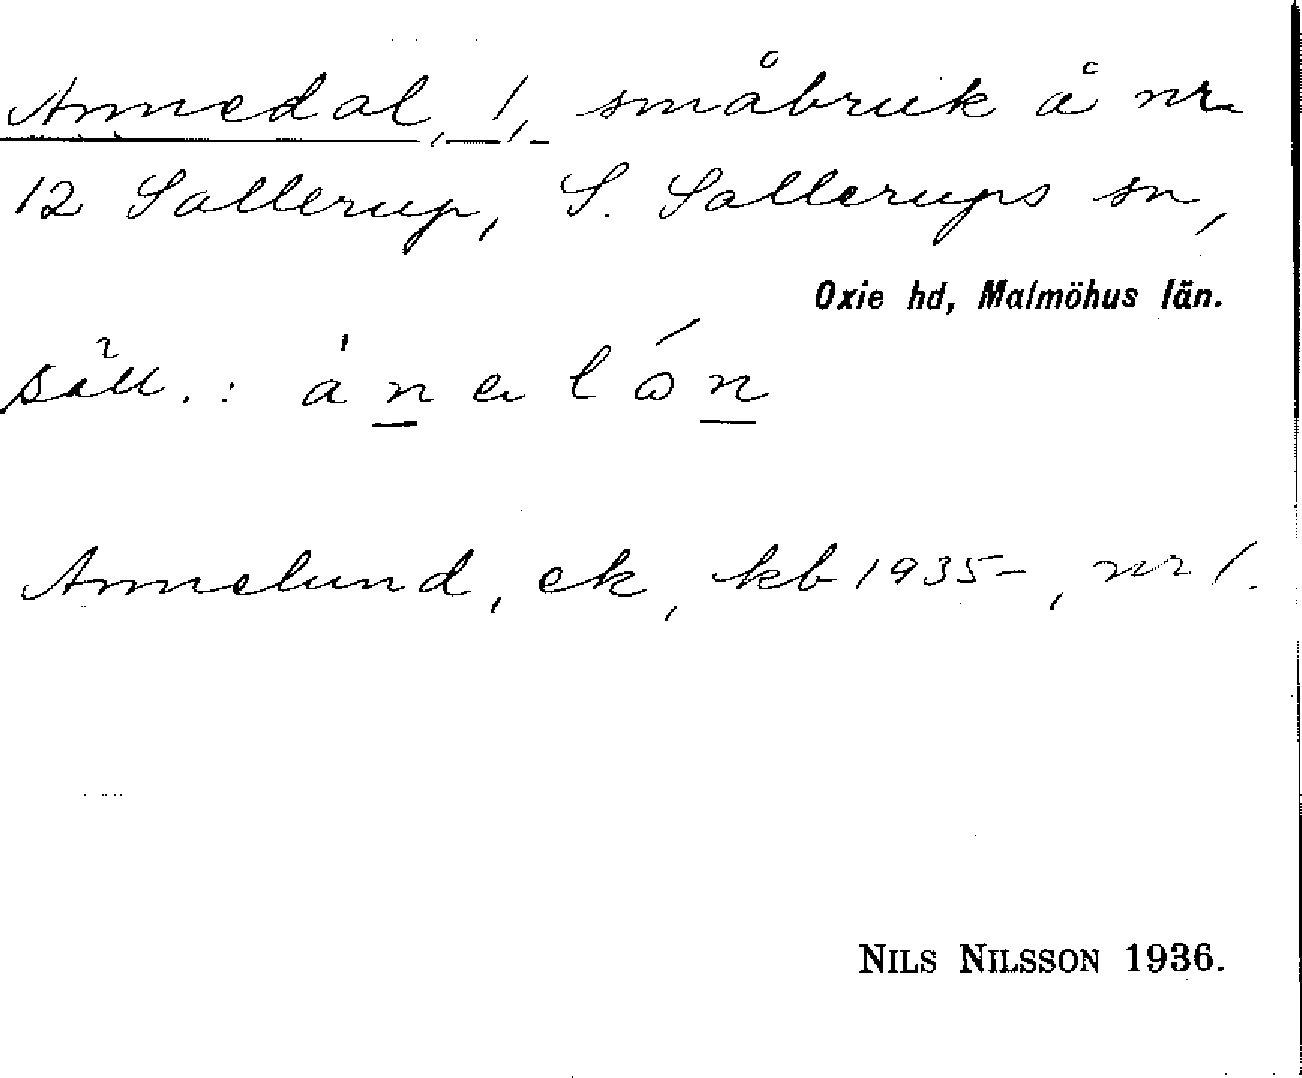 Annedal, 1, småbruk å nr
12 Sallerup, S. Sallerups sn,
Oxie hd, Malmöhus län.
Annelund, ek, kb 1935–, nr 1.
NILS NILSSON 1936.